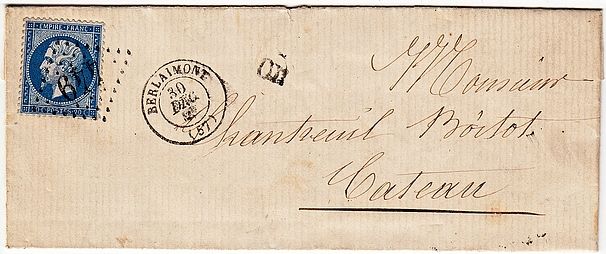 EMPIRE FRANC
BERLAIMONT
30
DEC
(57)
OR
Monsieur
Chantreuil Boitot
Cateau